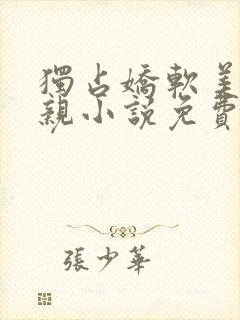 獨占嬌軟美
親小說免費
張少華